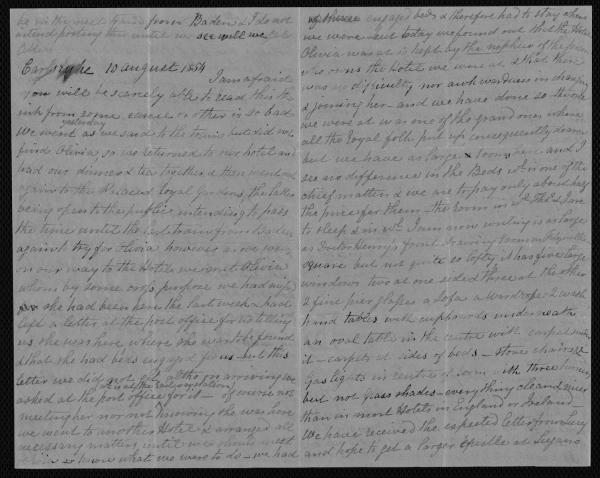 be in the next from Baden & I do not
intend posting this until we see will we
Carlsruhe 10 august 1854
I am afraid
you will be scarcely able to read this the
ink from some cause or other is so bad
We went as we said to the train yesterday but did not
find Olivia, so we returned to our hotel and
had our dinner & tea together & then went out
again to the Palace & Royal Gardens, the latter
being open to the public, intending to pass
the time until the last train from Baden
again to try for Olivia however as we were
on our way to the Hotel we met Olivia
whom by some cross purpose we had missed
she had been here the last week & had
left a letter at the post office for us telling
us she was here where she was to be found
& that she had beds engaged for us - but this
letter we did not get altho on arriving we
asked at the post office for it - of course not
meeting her nor not knowing she was here
we went to another Hotel & arranged all
necessary matters until we should meet
know what we were to do - we had
engaged beds & therefore had to stay where
we were but today we found out that the Hotel
Olivia was at is kept by the nephew of the person
who owns the hotel we were at & that there
was no difficulty nor awkwardness in changing
& joining her - and we have done so the one
we were at was one of the grand ones where
all the Royal folk put up consequently dearer
but we have as large rooms here and I
see no difference in the Beds wh. is one of the
chief matters & we are to pay only about half
the price for them - the room in wh. Thos. & Jane
to sleep & in wh. I am now writing is as large
as Doctor Henry's front Drawing room in Fitzwilliam
square but not quite so lofty it has five large
windows two at one side & three at the other
2 fine pier glasses a sofa a wardrobe 2 wash
hand tables with cupboards underneath
an oval table in the centre with carpet under
it - carpets at sides of beds - stone chairs &c
Gas lights in centre of room with three burners
but not glass shades - everything clean & nicer
than in most Hotels in England or Ireland
We have received the expected letter from Lucy
and hope to get a larger Epistle at Lugano